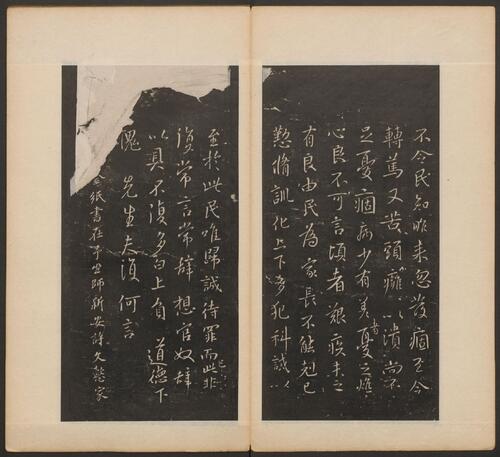 不令民知昨来忽發痼至今
轉篤又苦頭癰以潰尚不
足憂痼病少有差者憂之燋
心良不可言頃者艱疾未之
有良由民為家長不能剋己
懃脩訓化上下多犯科誡以
至於此民唯歸誠待罪而已此非
復常言常辭想官奴辭
以具不復多白上負 道德下
愧 先生夫復何言
紙書在師新安許文家